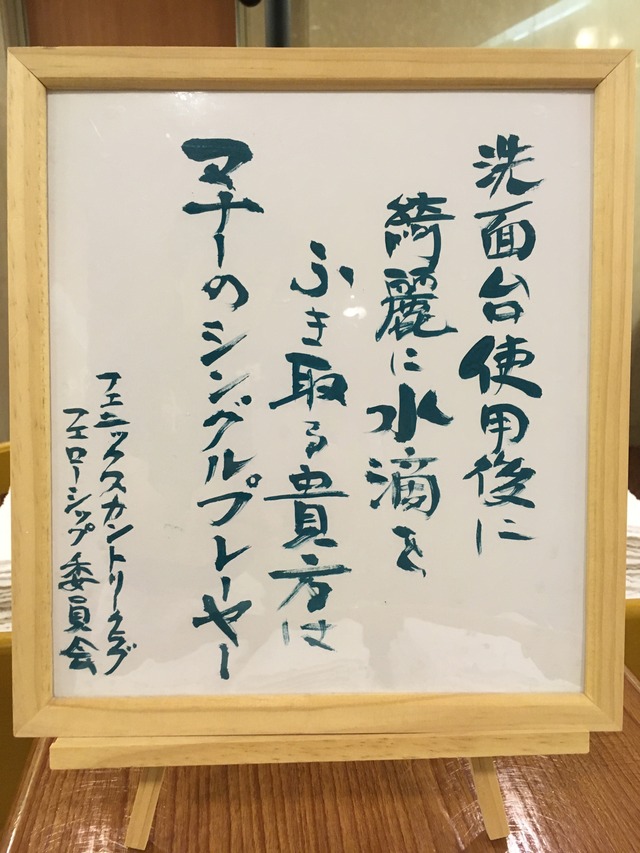 洗面台使用後に
綺麗に水滴を
ふき取る貴方は
マナーのシングルプレーヤー
フェニックスカントリークラブ
フェローシップ委員会